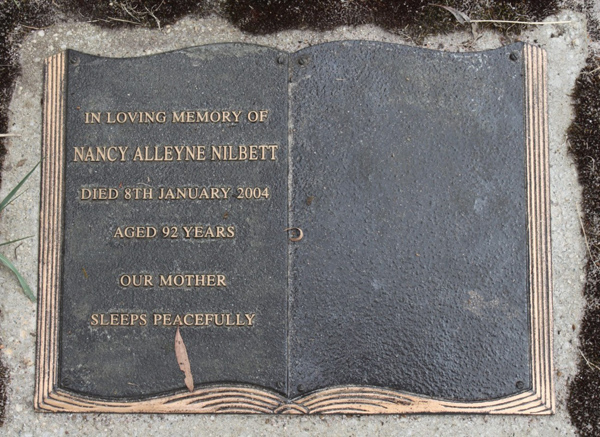 IN LOVING MEMORY OF
NANCY ALLEYNE NILBETT
DIED 8TH JANUARY 2004
AGED 92 YEARS
OUR MOTHER
SLEEPS PEACEFULLY